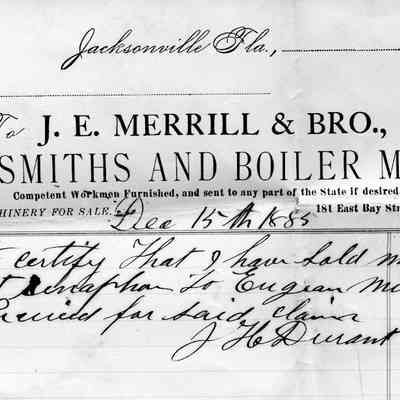 Jacksonville Fla.,
To J. E. MERRILL & BRO.,
SMITHS AND BOILER M
Competent Workmen Furnished, and sent to any part of the State if desired
HINERY FOR SALE. 181 East Bay Str
Dec 15th 1885
certify That I have sold m
to Eugean
for said claim
J H Durant